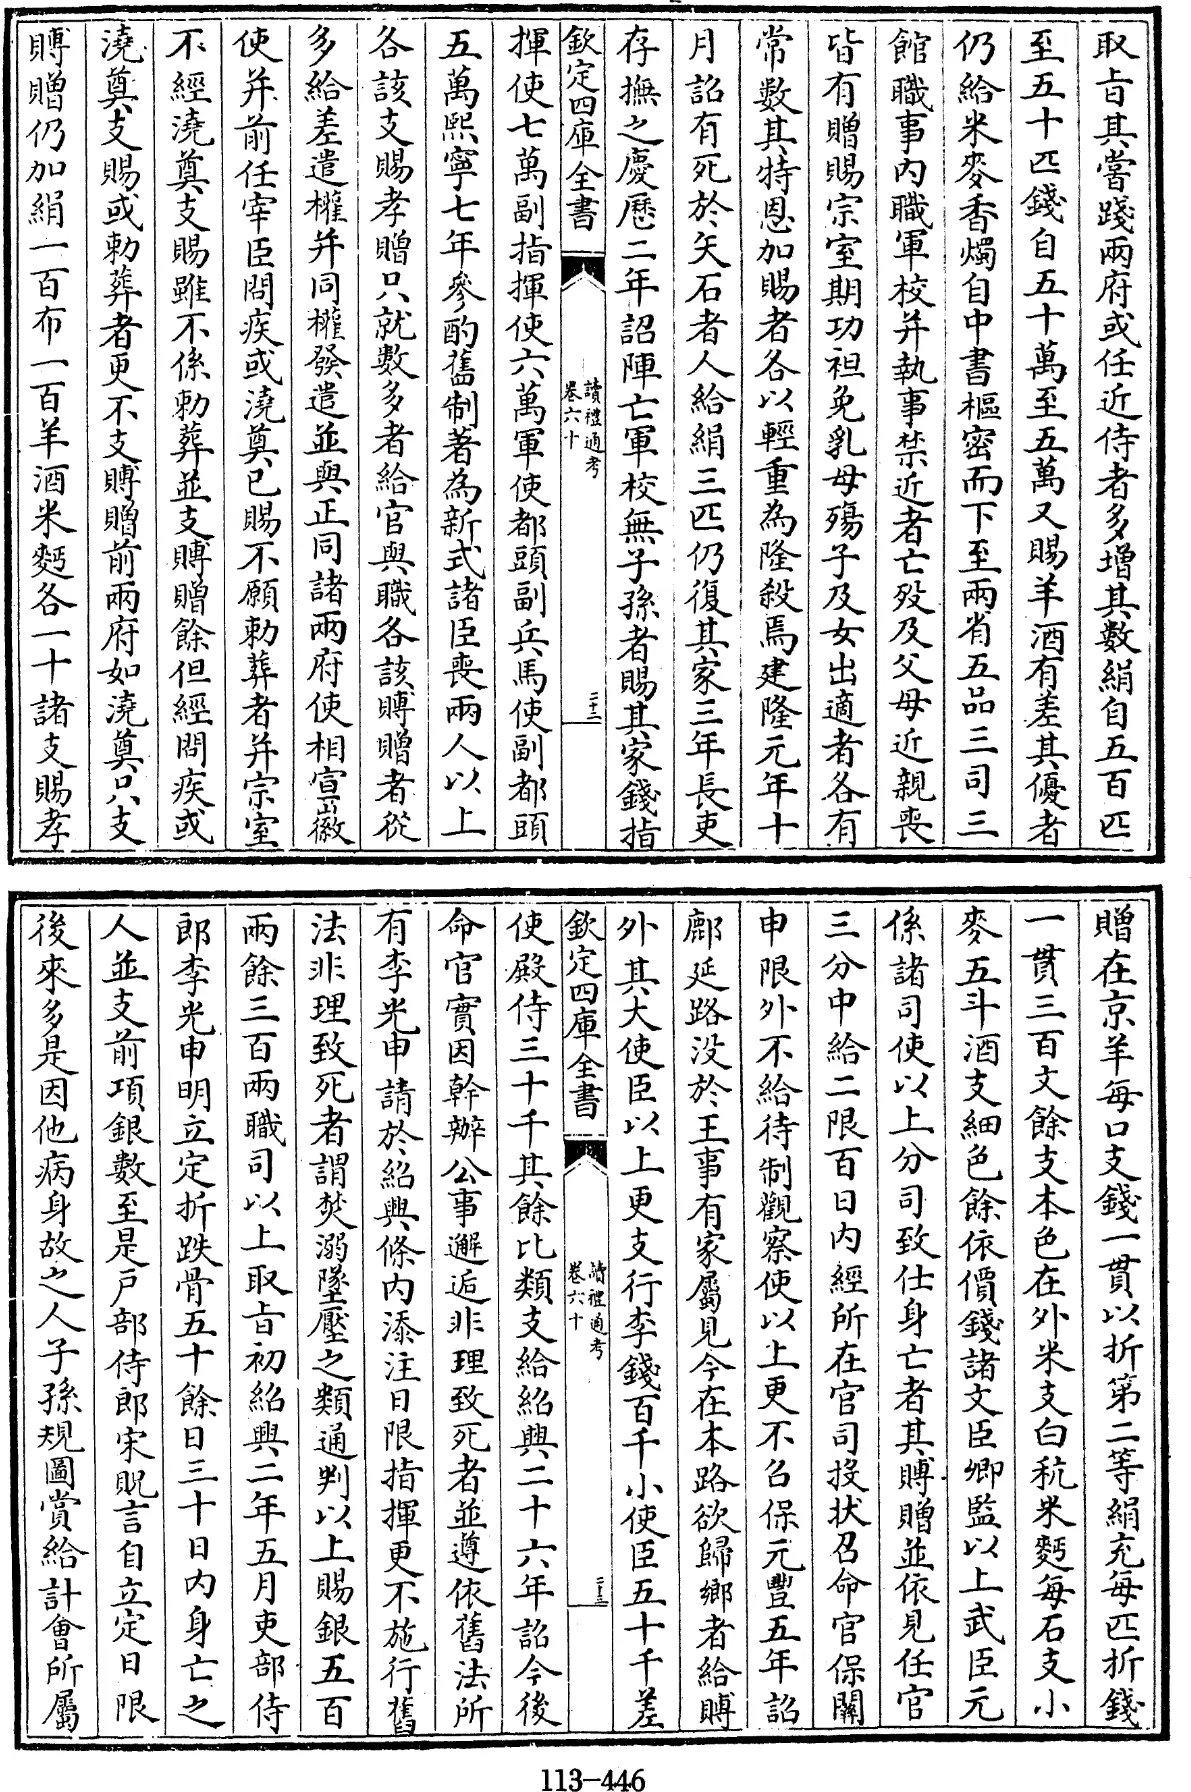 取㫖其嘗踐兩府或任近侍者多增其數絹自五百匹
至五十匹錢自五十萬至五萬又賜羊酒有差其優者
仍給米麥香燭自中書樞密而下至兩省五品三司三
館職事内職軍校并執事禁近者亡殁及父母近親喪
皆有贈賜宗室期功袒免乳母殤子及女出適者各有
常數其特恩加賜者各以輕重為隆殺焉建隆元年十
月詔有死於矢石者人給絹三匹仍復其家三年長吏
存撫之慶歷二年詔陣亡軍校無子孫者賜其家錢指
欽定四庫全書
讀禮通考
卷六十
三十二
揮使七萬副指揮使六萬軍使都頭副兵馬使副都頭
五萬熙寧七年參酌舊制著為新式諸臣喪兩人以上
各該支賜孝贈只就數多者給官與職各該賻贈者從
多給差遣權并同權發遣並與正同諸兩府使相宣徽
使并前任宰臣問疾或澆奠已賜不願勅葬者并宗室
不經澆奠支賜雖不係勅葬並支賻贈餘但經問疾或
澆奠支賜或勅葬者更不支賻贈前兩府如澆奠只支
賻贈仍加絹一百布一百羊酒米麪各一十諸支賜孝
贈在京羊每口支錢一貫以折第二等絹充每匹折錢
一貫三百文餘支本色在外米支白秔米麪每石支小
麥五斗酒支細色餘依價錢諸文臣卿監以上武臣元
係諸司使以上分司致仕身亡者其賻贈並依見任官
三分中給二限百日内經所在官司投狀召命官保關
申限外不給待制觀察使以上更不召保元豐五年詔
鄜延路没於王事有家屬見今在本路欲歸鄉者給賻
外其大使臣以上更支行李錢百千小使臣五十千差
欽定四庫全書
讀禮通考
卷六十
三十三
使殿侍三十千其餘比類支給紹興二十六年詔今後
命官實因幹辦公事邂逅非理致死者並遵依舊法所
有李光申請於紹興條内添注日限指揮更不施行舊
法非理致死者謂焚溺墜壓之類通判以上賜銀五百
兩餘三百兩職司以上取㫖初紹興二年五月吏部侍
郎李光申明立定折跌骨五十餘日三十日内身亡之
人並支前項銀數至是户部侍郎宋貺言自立定日限
後來多是因他病身故之人子孫規圖賞給計會所屬
113-446